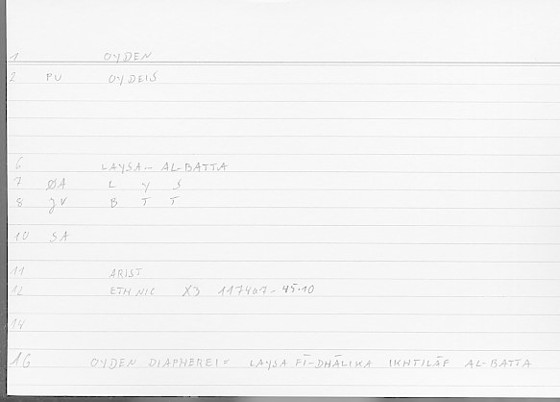 1 OYDEN
2 PU OYDEIS
6 LAYSA- AL-BATTA
7 ØA L Y S
8 JV B T T
10 SA
11 ARIST
12 ETH NIC X3 117a61-45.10
14
16 OYDEN DIAPHEREI= LAYSA FĪ-DHĀLIKA IKHTILĀF AL-BATTA